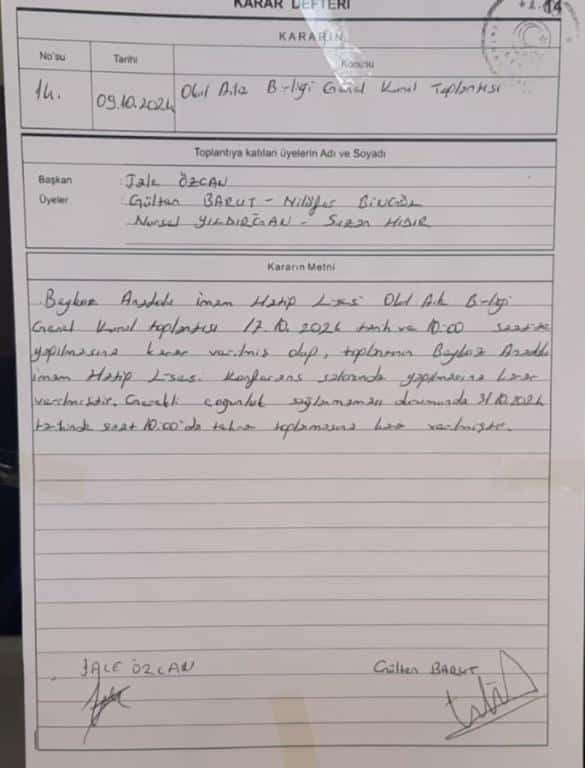 KARAR DEFTERİ
14
KARARIN
No'su
Tarihi
Konusu
14.
09.10.2024
Okul Aile Birliği Genel Kurul Toplantısı
Toplantıya katılan üyelerin Adı ve Soyadı
Başkan
Jale ÖZCAN
Üyeler
Gülten BARUT - Nilüfer BİNGÖL
Nursel YILDIRĞAN - Suzan HIDIR
Kararın Metni
Beykoz Anadolu İmam Hatip Lisesi Okul Aile Birliği
Genel Kurul toplantısı 17.10.2024 tarih ve 10:00 saatinde
yapılmasına karar verilmiş olup, toplantının Beykoz Anadolu
İmam Hatip Lisesi Konferans salonunda yapılmasına karar
verilmiştir. Gerekli çoğunluk sağlanmaması durumunda 31.10.2024
tarihinde saat 10:00'da tekrar toplanmasına karar verilmiştir.
JALE ÖZCAN
Gülten BARUT